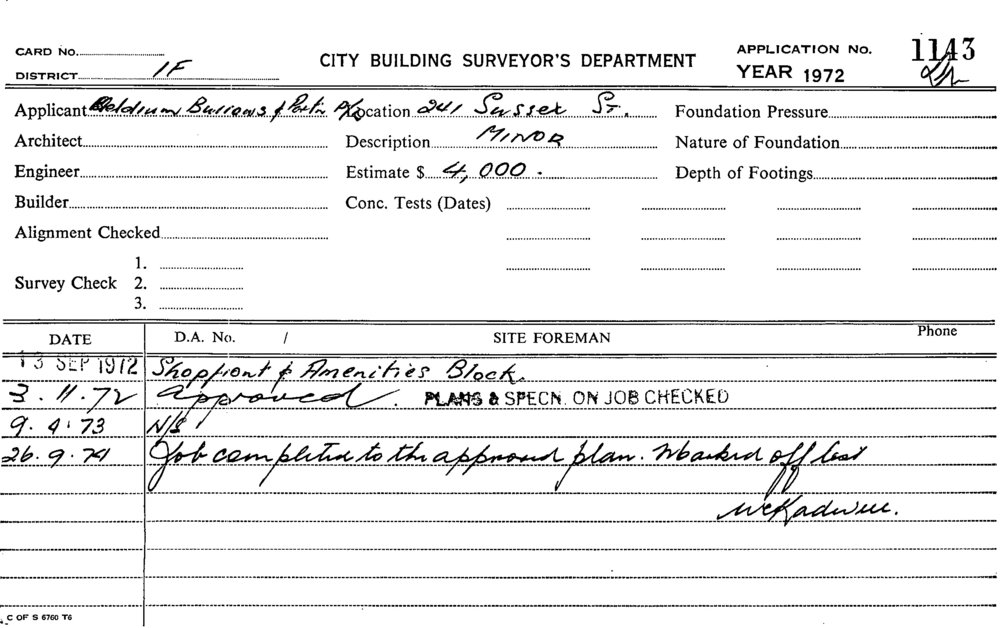 CARD No.
DISTRICT 1F
CITY BUILDING SURVEYOR'S DEPARTMENT
APPLICATION No. 1143
YEAR 1972
Applicant Burrows & Partn P/L Location 241 Sussex St. Foundation Pressure
Architect Description MINOR Nature of Foundation
Engineer Estimate $ 4,000. Depth of Footings
Builder Conc. Tests (Dates)
Alignment Checked
Survey Check 1.
2.
3.
DATE D.A. No. / SITE FOREMAN Phone
13 SEP 1972 Shopfront & Amenities Block.
3.11.72 Approved. PLANS & SPECN. ON JOB CHECKED
9.4.73 N/S
26.9.74 Job completed to the approved plan. Marked off
C OF S 6760 T6